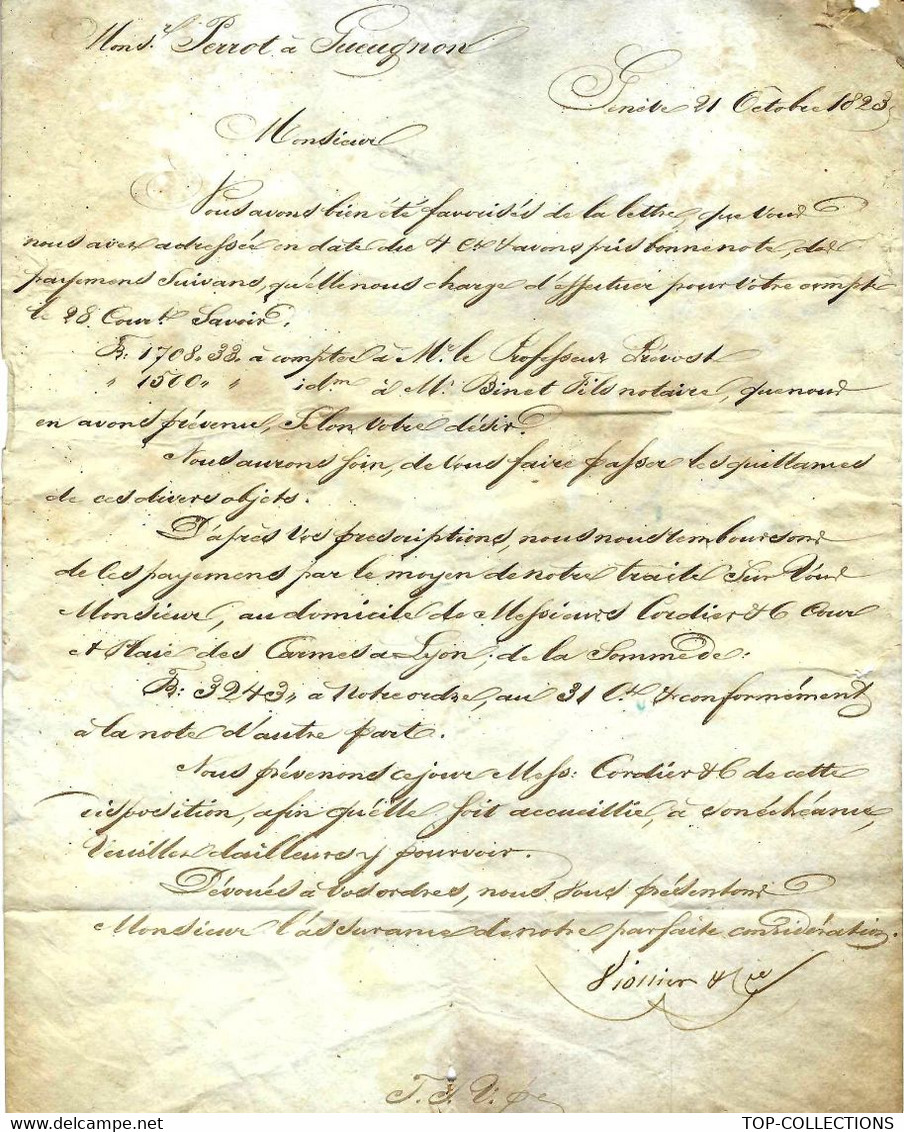 Mons.r Perrot à Gueugnon
Genève 21 Octobre 1823
Monsieur
Nous avons bien été favorisés de la lettre, que vous
nous avez adressée en date du 4 Ct & avons pris bonne note, des
payemens suivans, qu'elle nous charge d'effectuer pour votre compte
le 28 Cour.t Savoir.
Fr: 1708.33. à compter à Mr. le Professeur Prévost
" 1500 " " idm à Mr. Binet Fils notaire, que nous
en avons prévenu, selon votre désir.
Nous aurons soin, de vous faire passer les quittances
de ces divers objets.
D'après vos prescriptions, nous nous remboursons
de ces payemens par le moyen de notre traite sur vous
Monsieur, au domicile de Messieurs Cordier & C Cour
et Place des Carmes a Lyon, de la Somme de:
Fr: 3243 " à notre ordre, au 31 Ct & conformément
à la note d'autre part.
Nous prévenons ce jour Mess: Cordier & C de cette
disposition, afin qu'elle soit accueillie, à son échéance,
Veuillez d'ailleurs y pourvoir.
Dévoués à vos ordres, nous vous présentons
Monsieur l'assurance de notre parfaite considération.
& Cie
T. S. V. p
TOP-COLLECTIONS